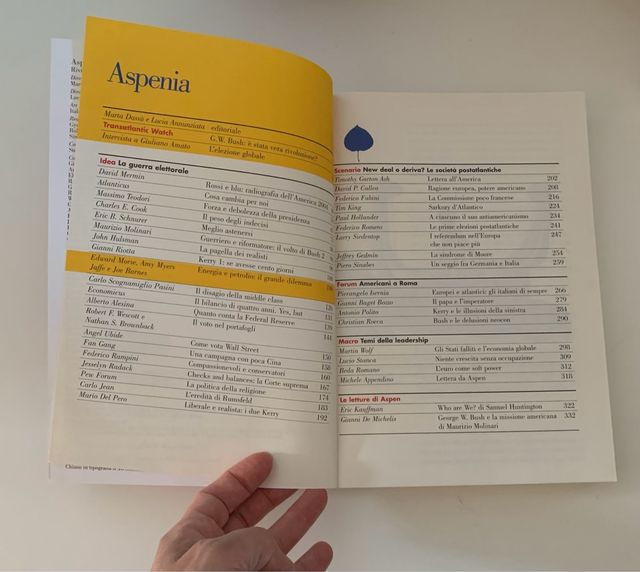 Aspenia
Marta Dassù e Lucia Annunziata editoriale
Transatlantic Watch G.W. Bush: è stata vera rivoluzione?
Intervista a Giuliano Amato L'elezione globale
Idea La guerra elettorale
David Mermin Rossi e blu: radiografia dell'America 2004
Atlanticus Cosa cambia per noi
Massimo Teodori Forza e debolezza della presidenza
Charles E. Cook Il peso degli indecisi
Eric B. Schnurer Meglio astenersi
Maurizio Molinari Guerriero e riformatore: il volto di Bush 2
John Hulsman La pagella dei realisti
Gianni Riotta Kerry 1: se avesse cento giorni
Edward Morse, Amy Myers
Jaffe e Joe Barnes Energia e petrolio: il grande dilemma
Carlo Scognamiglio Pasini Il disagio della middle class
Economicus Il bilancio di quattro anni. Yes, but
Alberto Alesina Quanto conta la Federal Reserve 131
Robert F. Wescott e Il voto nel portafogli 139
Nathan S. Brownback 144
Angel Ubide Come vota Wall Street 150
Fan Gang Una campagna con poca Cina 158
Federico Rampini Compassionevoli e conservatori 160
Jesselyn Radack Checks and balances: la Corte suprema 167
Pew Forum La politica della religione 174
Carlo Jean L'eredità di Rumsfeld 183
Mario Del Pero Liberale e realista: i due Kerry 192
Scenario New deal o deriva? Le società postatlantiche
Timothy Garton Ash Lettera all'America 202
David P. Calleo Ragione europea, potere americano 208
Federico Fubini La Commissione poco francese 216
Tim King Sarkozy d'Atlantico 224
Paul Hollander A ciascuno il suo antiamericanismo 234
Federico Romero Le prime elezioni postatlantiche 241
Larry Siedentop I referendum nell'Europa 247
che non piace più
Jeffrey Gedmin La sindrome di Moore 254
Piero Sinabes Un seggio fra Germania e Italia 259
Forum Americani a Roma
Pierangelo Isernia Europei e atlantici: gli italiani di sempre 266
Gianni Baget Bozzo Il papa e l'imperatore 279
Antonio Polito Kerry e le illusioni della sinistra 284
Christian Rocca Bush e le delusioni neocon 290
Macro Temi della leadership
Martin Wolf Gli Stati falliti e l'economia globale 298
Lucio Stanca Niente crescita senza occupazione 309
Beda Romano L'euro come soft power 312
Michele Appendino Lettera da Aspen 318
Le letture di Aspen
Eric Kauffman Who are We? di Samuel Huntington 322
Gianni De Michelis George W. Bush e la missione americana 332
di Maurizio Molinari